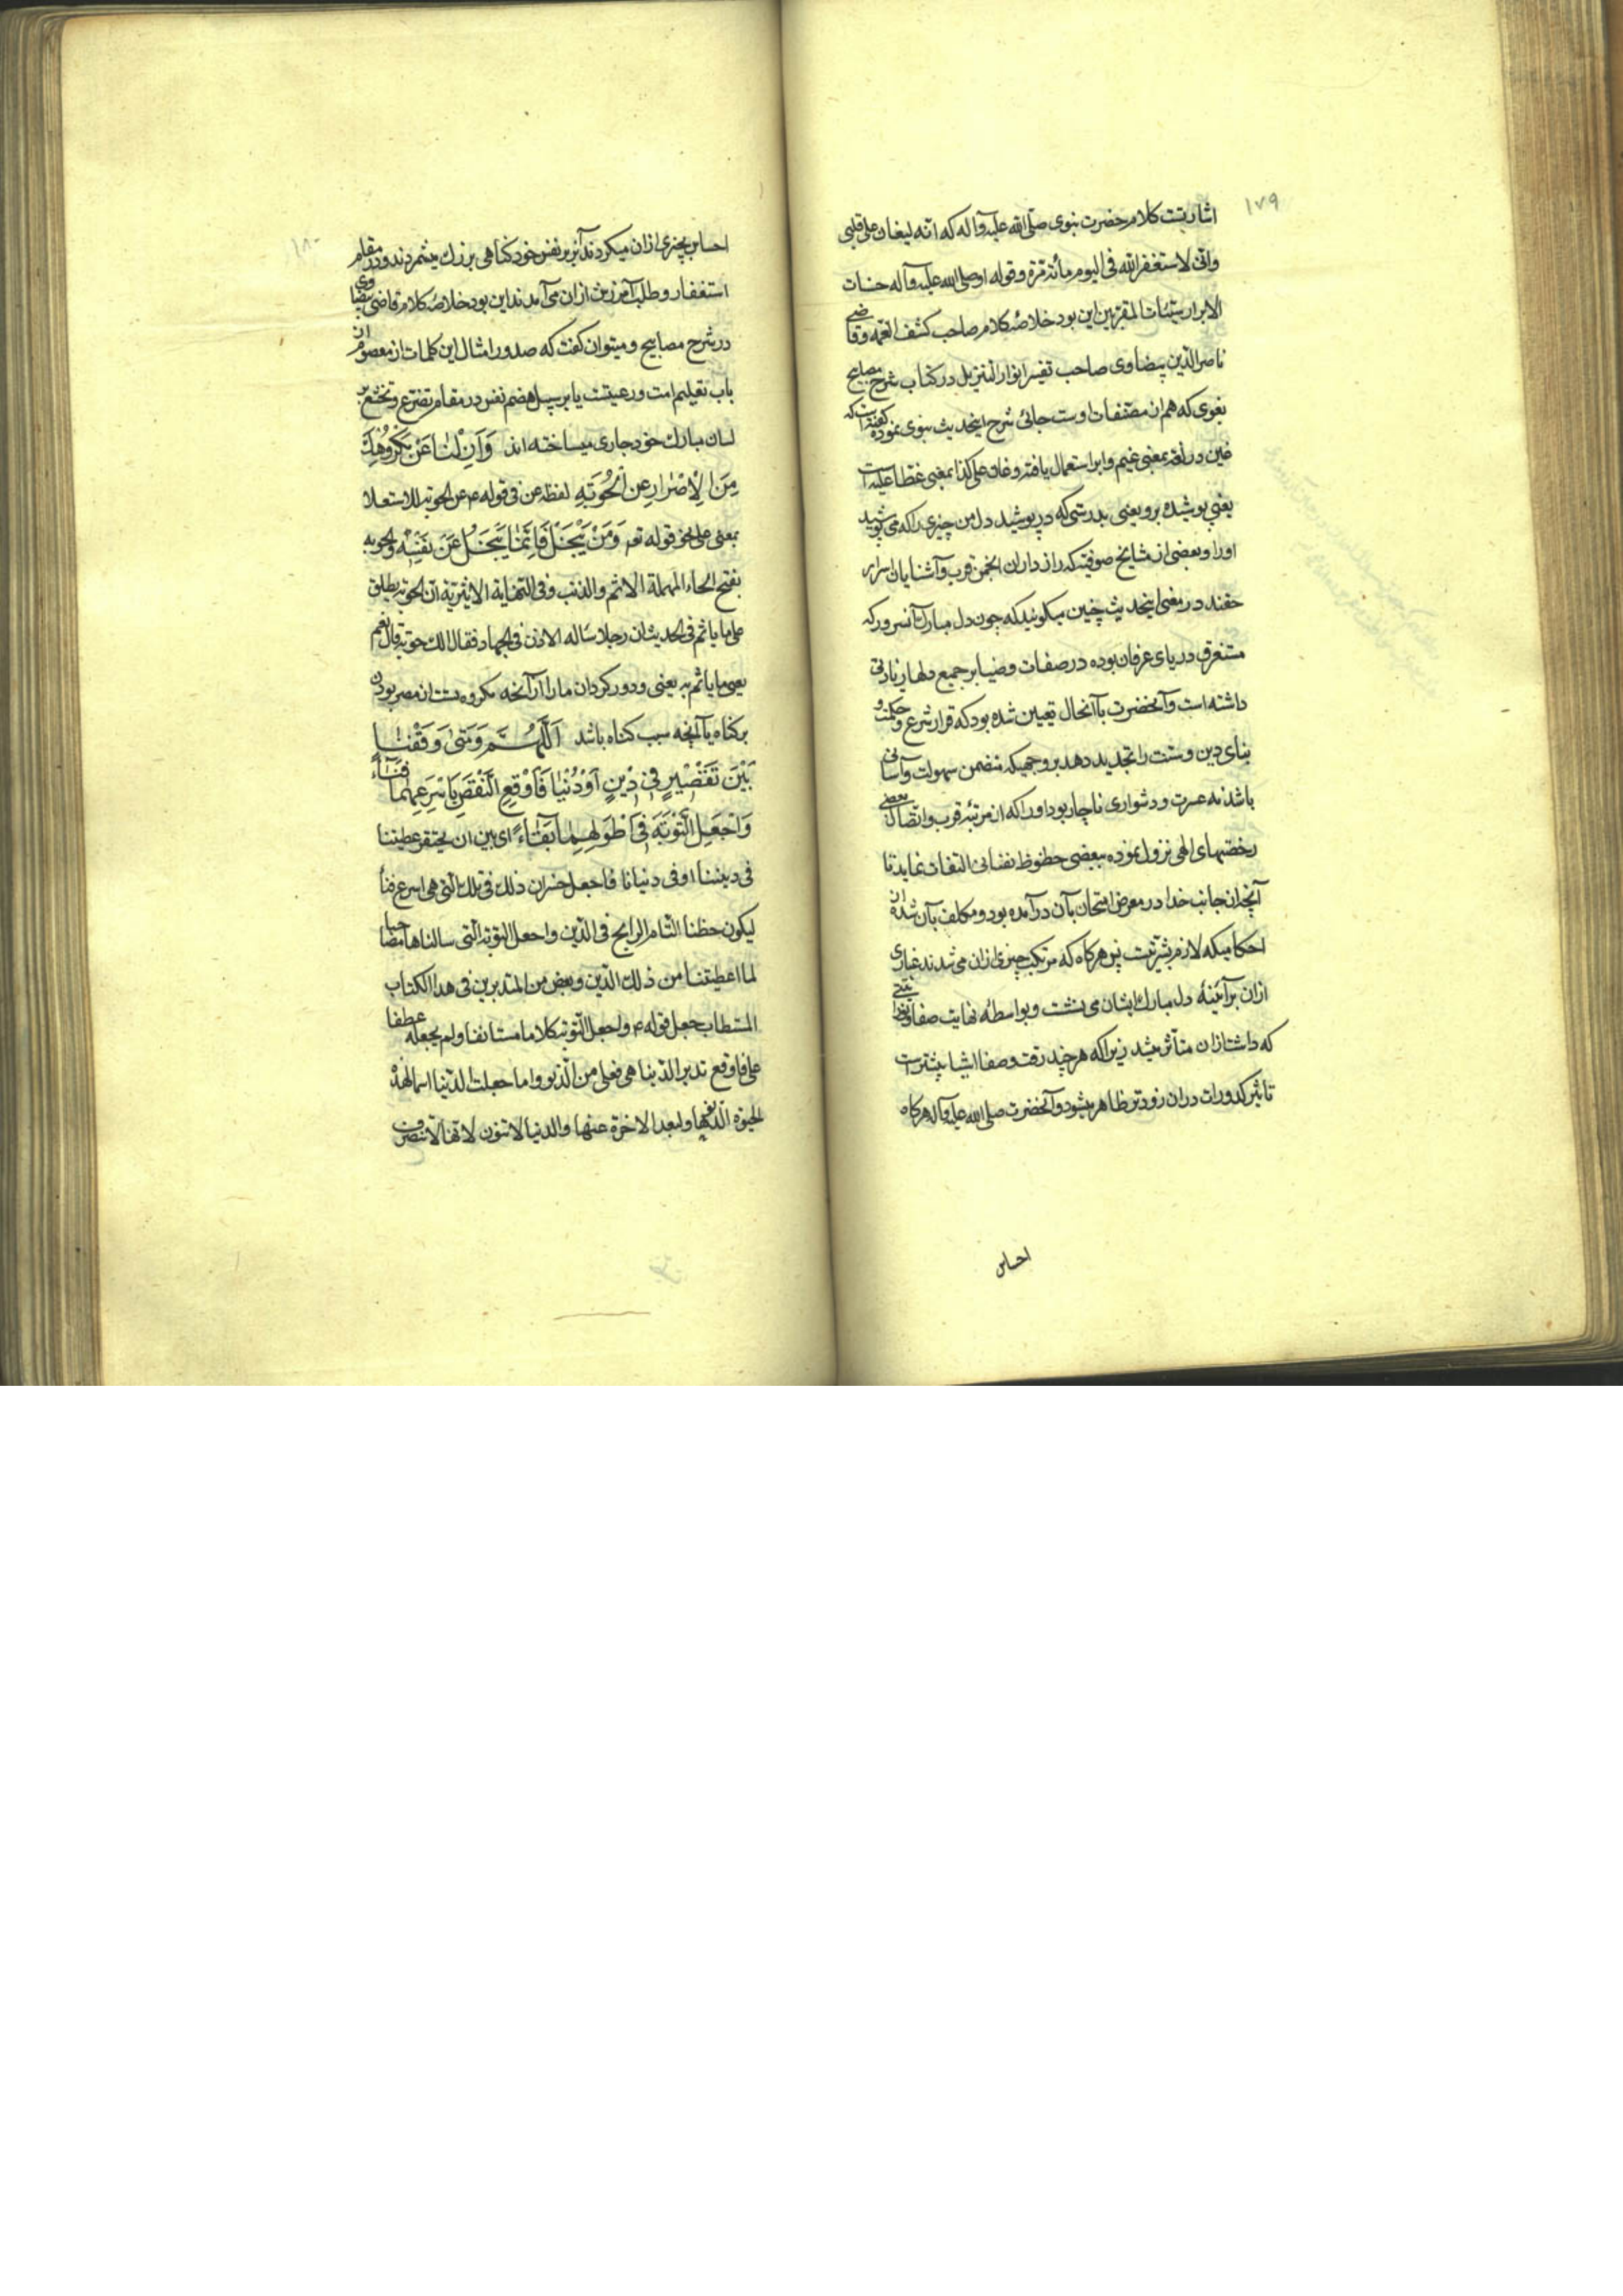 ١٧٩
اشارتست كلام حضرت نبوى صلّى الله عليه وآله كه انّه ليغان على قلبى
وانّى لاستغفر الله فى اليوم مائة مرّة وقوله او صلى الله عليه وآله حسنات
الابرار سيّئات المقرّبين اين بود خلاصهٔ كلام صاحب كشف الغمّه وقاضى
ناصر الدّين بيضاوى صاحب تفسير انوار التنزيل در كتاب شرح مصابيح
بغوى كه هم از مصنّفات اوست جائى شرح اينحديث نبوى نموده كفته است كه
غين در لغة بمعنى غيم وابر استعمال يافته وغان على كذا بمعنى غطا عليه است
يعنى پوشيده برو يعنى بدرستى كه در پوشيد دل من چيزى را كه مى پوشيد
او را وبعضى از مشايخ صوفيّه كه راز داران انجمن قرب وآشنايان اسرار
حقند در معنى اينحديث چنين ميكويند كه چون دل مبارك آنسرور كه
مستغرق درياى عرفان بوده در صفات وضيا بر جميع دلها زيادتى
داشته است وآنحضرت با آنحال تعيين شده بود كه قرار شرع وحكمت و
بناى دين وسنّت را تجديد دهد بر وجهيكه متضمن سهولت وآسانى
باشد نه عسرت ودشوارى ناچار بود او را كه از مرتبهٔ قرب واتّصال ببعضى
رخصتهاى الهى نزول نموده ببعضى حظوظ نفسانى التفات نمايد تا
آنچه از جانب خدا در معرض امتحان بآن در آمده بود ومكلف بآن شده از
احكاميكه لازم بشريّتست پس هركاه كه مرتكب چيزى ازان مى شدند غبارى
ازان بر آئينهٔ دل مبارك ايشان مى نشست وبواسطهٔ نهايت صفا ونورانيتى
كه داشت ازان متأثر ميشد زيرا كه هر چند رقت وصفا اشيا بيشتر است
تاثير كدورات دران زودتر ظاهر ميشود وآنحضرت صلى الله عليه وآله هركاه
احساس
احساس بچيزى ازان ميكردند آنرا بر نفس خود كناهى بزرك ميشمردند ودر مقام
استغفار وطلب آمرزش ازان مى آمدند اين بود خلاصهٔ كلام قاضى بيضاوى
در شرح مصابيح وميتوان كفت كه صدور امثال اين كلمات از معصومان از
باب تعليم امت ورعيتست يا بر سبيل هضم نفس در مقام تضرع وتخشع بر
لسان مبارك خود جارى ميساخته اند وَاَزِلْنَا عَنْ مَكْرُوهِكَ
مِنَ الْاِصْرَارِ عن الْحُوبَةِ لفظه عن فى قوله ع عن الحوبة للاستعلا
بمعنى على نحو قوله تعه وَمَنْ يَبْخَلْ فَاِنَّمَا يَبْخَلُ عَنْ نَفْسِهِ والحوبه
بفتح الحاء المهملة الاثم والذنب وفى النّهاية الاثيريّة انّ الحوبة يطلق
على ما ياثم فى الحديث ان رجلا ساله الاذن فى الجهاد فقال الك حوبة قال نعم
يعنى ما ياثم به يعنى ودور كردان ما را از آنچه مكروه تست از مصر بودن
بركناه يا آنچه سبب كناه باشد اَللّٰهُمَّ وَمَتٰى وَقَفْنَا
بَيْنَ نَقْصَيْنِ فِى دِيْنٍ اَوْ دُنْيَا فَاَوْقِعِ النَّقْصَ بِاَسْرَعِهِمَا فَنَاءً
وَاجْعَلِ التَّوْبَةَ فِى اَطْوَلِهِمَا بَقَاءً اى بين ان يحتقر عطيتنا
فى ديننا او فى دنيانا فاجعل خسران ذلك فى تلك الّتى هى اسرع فنأ
ليكون حظنا التّام الرابح فى الدّين واجعل التوبة الّتى سالناها
لما اعطيتنا من ذلك الدّين وبعض من المتدبرين فى هذا الكتاب
المستطاب جعل قوله ع واجعل التّوبة كلاما مستانفا ولم يجعله عطفا
على فاوقع تدبر الدّنيا هى فعلى من الدّنو وانما جعلت الدّنيا اسما لهذه
الحيوة الدّنو ها ولبعد الاخرة عنها والدنيا لا تنون لانّها لا تنصرف